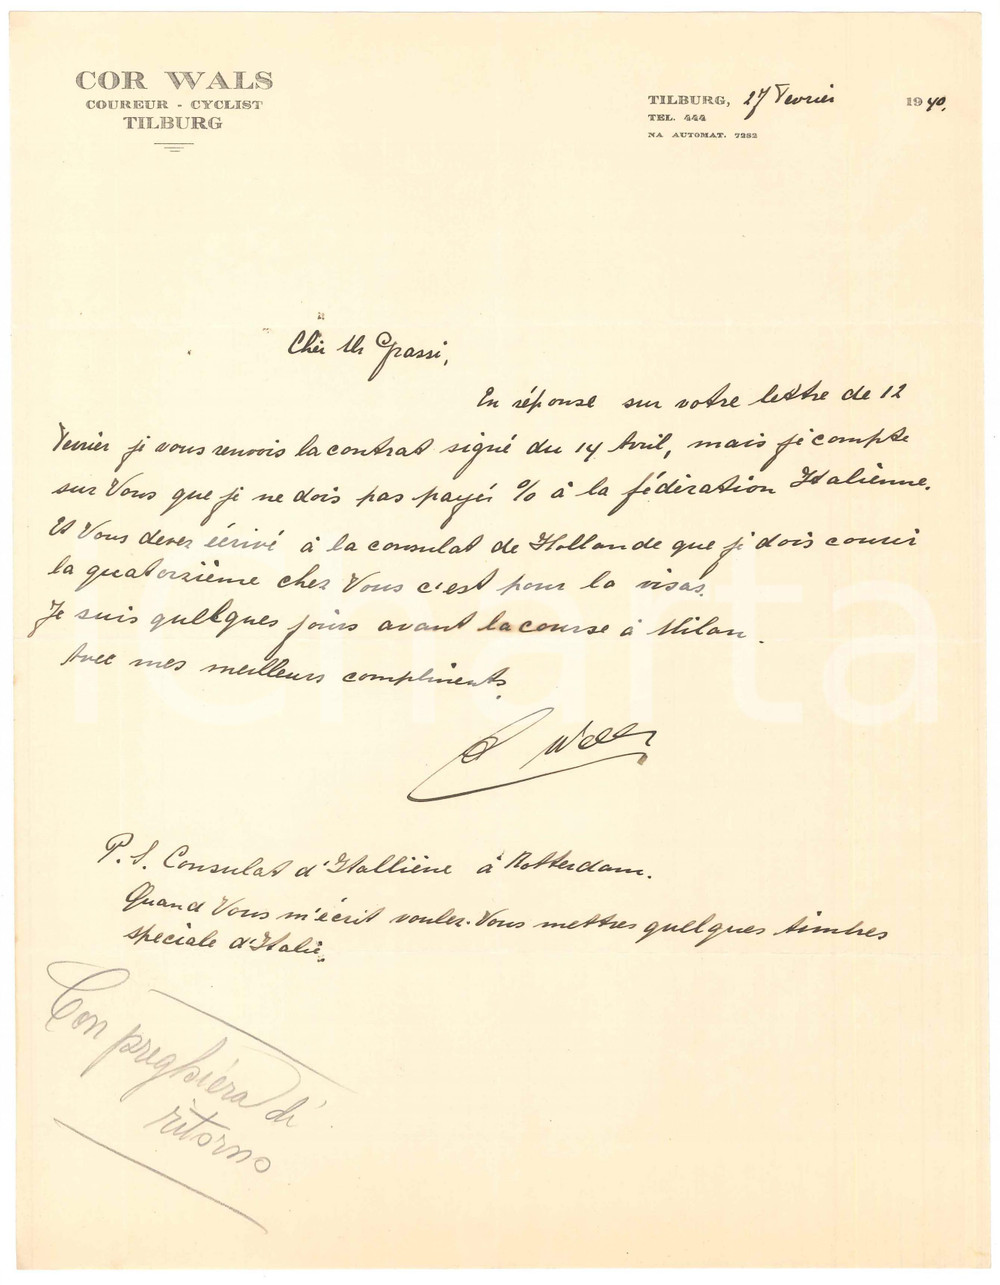 COR WALS
COUREUR - CYCLIST
TILBURG
TILBURG, 27 Fevrier 1940.
TEL. 444
NA AUTOMAT. 7282
Cher Mr Grassi,
En réponse sur votre lettre de 12
Fevrier je vous renvois la contrat signé du 14 Avril, mais je compte
sur Vous que je ne dois pas payér % à la fédération Italiènne.
Et Vous devez écrivé à la consulat de Hollande que je dois courir
la quatorzième chez Vous c'est pour la visas.
Je suis quelques jours avant la course à Milan.
Avec mes meilleurs compliments.
C Wals
P.S. Consulat d'Italliène à Rotterdam.
Quand Vous m'écrit voulez-Vous mettres quelques timbres
speciale d'Italie.
Con preghiera di
ritorno
icharta